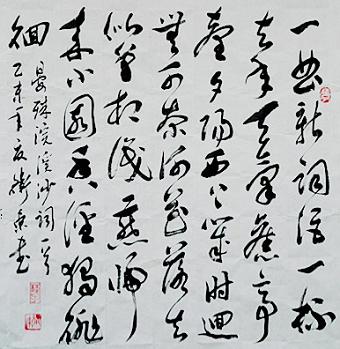 一曲新詞酒一杯
去年天氣舊亭
臺夕陽西下幾時迴
無可奈何花落去
似曾相識燕歸
來小園香徑獨徘
徊
晏殊浣溪沙詞一首
乙未年夏衛東書